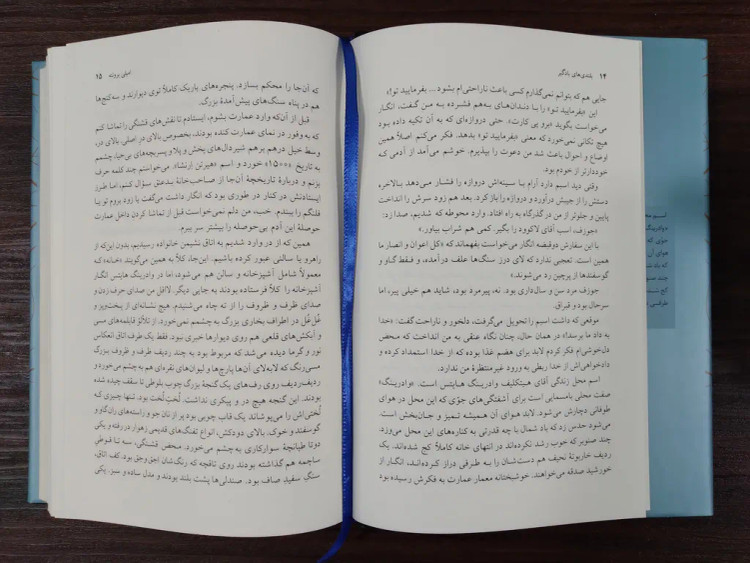 ۱۴ بلندی‌های بادگیر
جایی هم که بتوانم نمی‌گذارم کسی باعث ناراحتی‌ام بشود... بفرمایید تو!»
این «بفرمایید تو» را با دندان‌های به‌هم فشرده به من گفت، انگار
می‌خواست بگوید «برو پی کارت». حتی دروازه‌ای که به آن تکیه داده بود
هیچ تکانی نمی‌خورد که معنی «بفرمایید تو» بدهد. فکر می‌کنم اصلاً همین
اوضاع و احوال باعث شد من دعوت را بپذیرم. خوشم می‌آمد از آدمی که
خوددارتر از خودم بود.
وقتی دید اسبم دارد آرام با سینه‌اش دروازه را فشار می‌دهد بالاخره
دستش را از جیبش درآورد و دروازه را باز کرد. بعد هم زود سرش را انداخت
پایین و جلوتر از من در گذرگاه به راه افتاد. وارد محوطه که شدیم، صدا زد:
«جوزف، اسب آقای لاکوود را بگیر. کمی هم شراب بیاور.»
با این سفارش دوقبضه انگار می‌خواست بفهماند که «کل اعوان و انصار ما
همین است. تعجبی ندارد که لای درز سنگ‌ها علف درآمده، و فقط گاو و
گوسفندها از پرچین رد می‌شوند.»
جوزف مرد سن و سال‌داری بود. نه، پیرمرد بود، شاید هم خیلی پیر، اما
سرحال بود و قبراق.
موقعی که داشت اسبم را تحویل می‌گرفت، دلخور و ناراحت گفت: «خدا
به داد ما برسد!» در همان حال، چنان نگاه عنقی به من انداخت که محض
دل‌خوشی‌ام فکر کردم لابد برای هضم غذا بوده که از خدا استمداد کرده و
دادخواهی‌اش از خدا ربطی به ورود غیرمنتظرهٔ من ندارد.
اسم محل زندگی آقای هیتکلیف وادرینگ هایتس است. «وادرینگ»
صفت محلی بامسمایی است برای آشفتگی‌های جوّی که این محل در هوای
طوفانی دچارش می‌شود. لابد هوای آن همیشه تمیز و جان‌بخش است.
می‌شود حدس زد که باد شمال با چه قدرتی به کناره‌های این محل می‌وزد.
چند صنوبر که خوب رشد نکرده‌اند در انتهای خانه کاملاً کج شده‌اند. یک
ردیف خاربوتهٔ نحیف هم دست‌شان را به طرفی دراز کرده‌اند، انگار از
خورشید صدقه می‌خواهند. خوشبختانه معمار عمارت به فکرش رسیده بود
امیلی برونته ۱۵
که آن‌جا را محکم بسازد. پنجره‌های باریک کاملاً توی دیوارند و سه‌کنج‌ها
هم در پناه سنگ‌های پیش‌آمدهٔ بزرگ.
قبل از آن‌که وارد عمارت بشوم، ایستادم تا نقش‌های قشنگی را تماشا کنم
که به وفور در نمای عمارت کنده بودند، بخصوص بالای در اصلی. بالای در،
وسط خیل درهم برهم شیردال‌های پخش و پلا و پسربچه‌های بی‌حیا، چشمم
به تاریخ «۱۵۰۰» خورد و اسم «هیرتن اِرنشا». می‌خواستم چند کلمه حرف
بزنم و دربارهٔ تاریخچهٔ آن‌جا از صاحب‌خانهٔ بدعنق سؤال کنم، اما طرز
ایستادنش در کنار در طوری بود که انگار داشت می‌گفت یا زود بروم تو یا
فلنگم را ببندم. خب، من دلم نمی‌خواست قبل از تماشا کردن داخل عمارت
حوصلهٔ این آدم بی‌حوصله را بیشتر سر ببرم.
همین که از در وارد شدیم به اتاق نشیمن خانواده رسیدیم، بدون این‌که از
راهرو یا سالنی عبور کرده باشیم. این‌جا، کلاً به همین می‌گویند «خانه» که
معمولاً شامل آشپزخانه و سالن هم می‌شود، اما در وادرینگ هایتس انگار
آشپزخانه را کلاً فرستاده بودند به جایی دیگر. لااقل من صدای حرف زدن و
صدای ظرف و ظروف را از ته جاه می‌شنیدم. هیچ نشانه‌ای از پخت‌وپز و
غُل‌غُل در اطراف بخاری بزرگ به چشمم نمی‌خورد. از تلألؤ قابلمه‌های مسی
و آبکش‌های قلعی هم روی دیوارها خبری نبود. فقط در یک طرف اتاق انعکاس
نور و گرما دیده می‌شد که مربوط بود به چند ردیف ظرف و ظروف بزرگ
مسی‌رنگ که لابه‌لای آن‌ها پارچ‌ها و لیوان‌های نقره‌ای هم به چشم می‌خورد و
ردیف‌ردیف روی رف‌های یک گنجهٔ بزرگ چوب بلوطی تا سقف چیده شده
بودند. این گنجه هیچ در و پیکری نداشت. لُختِ لُخت بود. تنها چیزی که
لُختی‌اش را می‌پوشاند یک قاب چوبی بود پر از نان جو و راسته‌های ران گاو و
گوسفند و خوک. بالای دودکش، انواع تفنگ‌های قدیمی زهوار در رفته و یکی
دوتا طپانچهٔ سوارکاری به چشم می‌خورد. محض قشنگی، سه تا قوطی
ساچمه هم گذاشته بودند روی تاقچه که رنگ‌شان اجق وجق بود. کف اتاق،
سنگ سفید صاف بود. صندلی‌ها پشت بلند بودند و مدل ساده و سبز. یکی